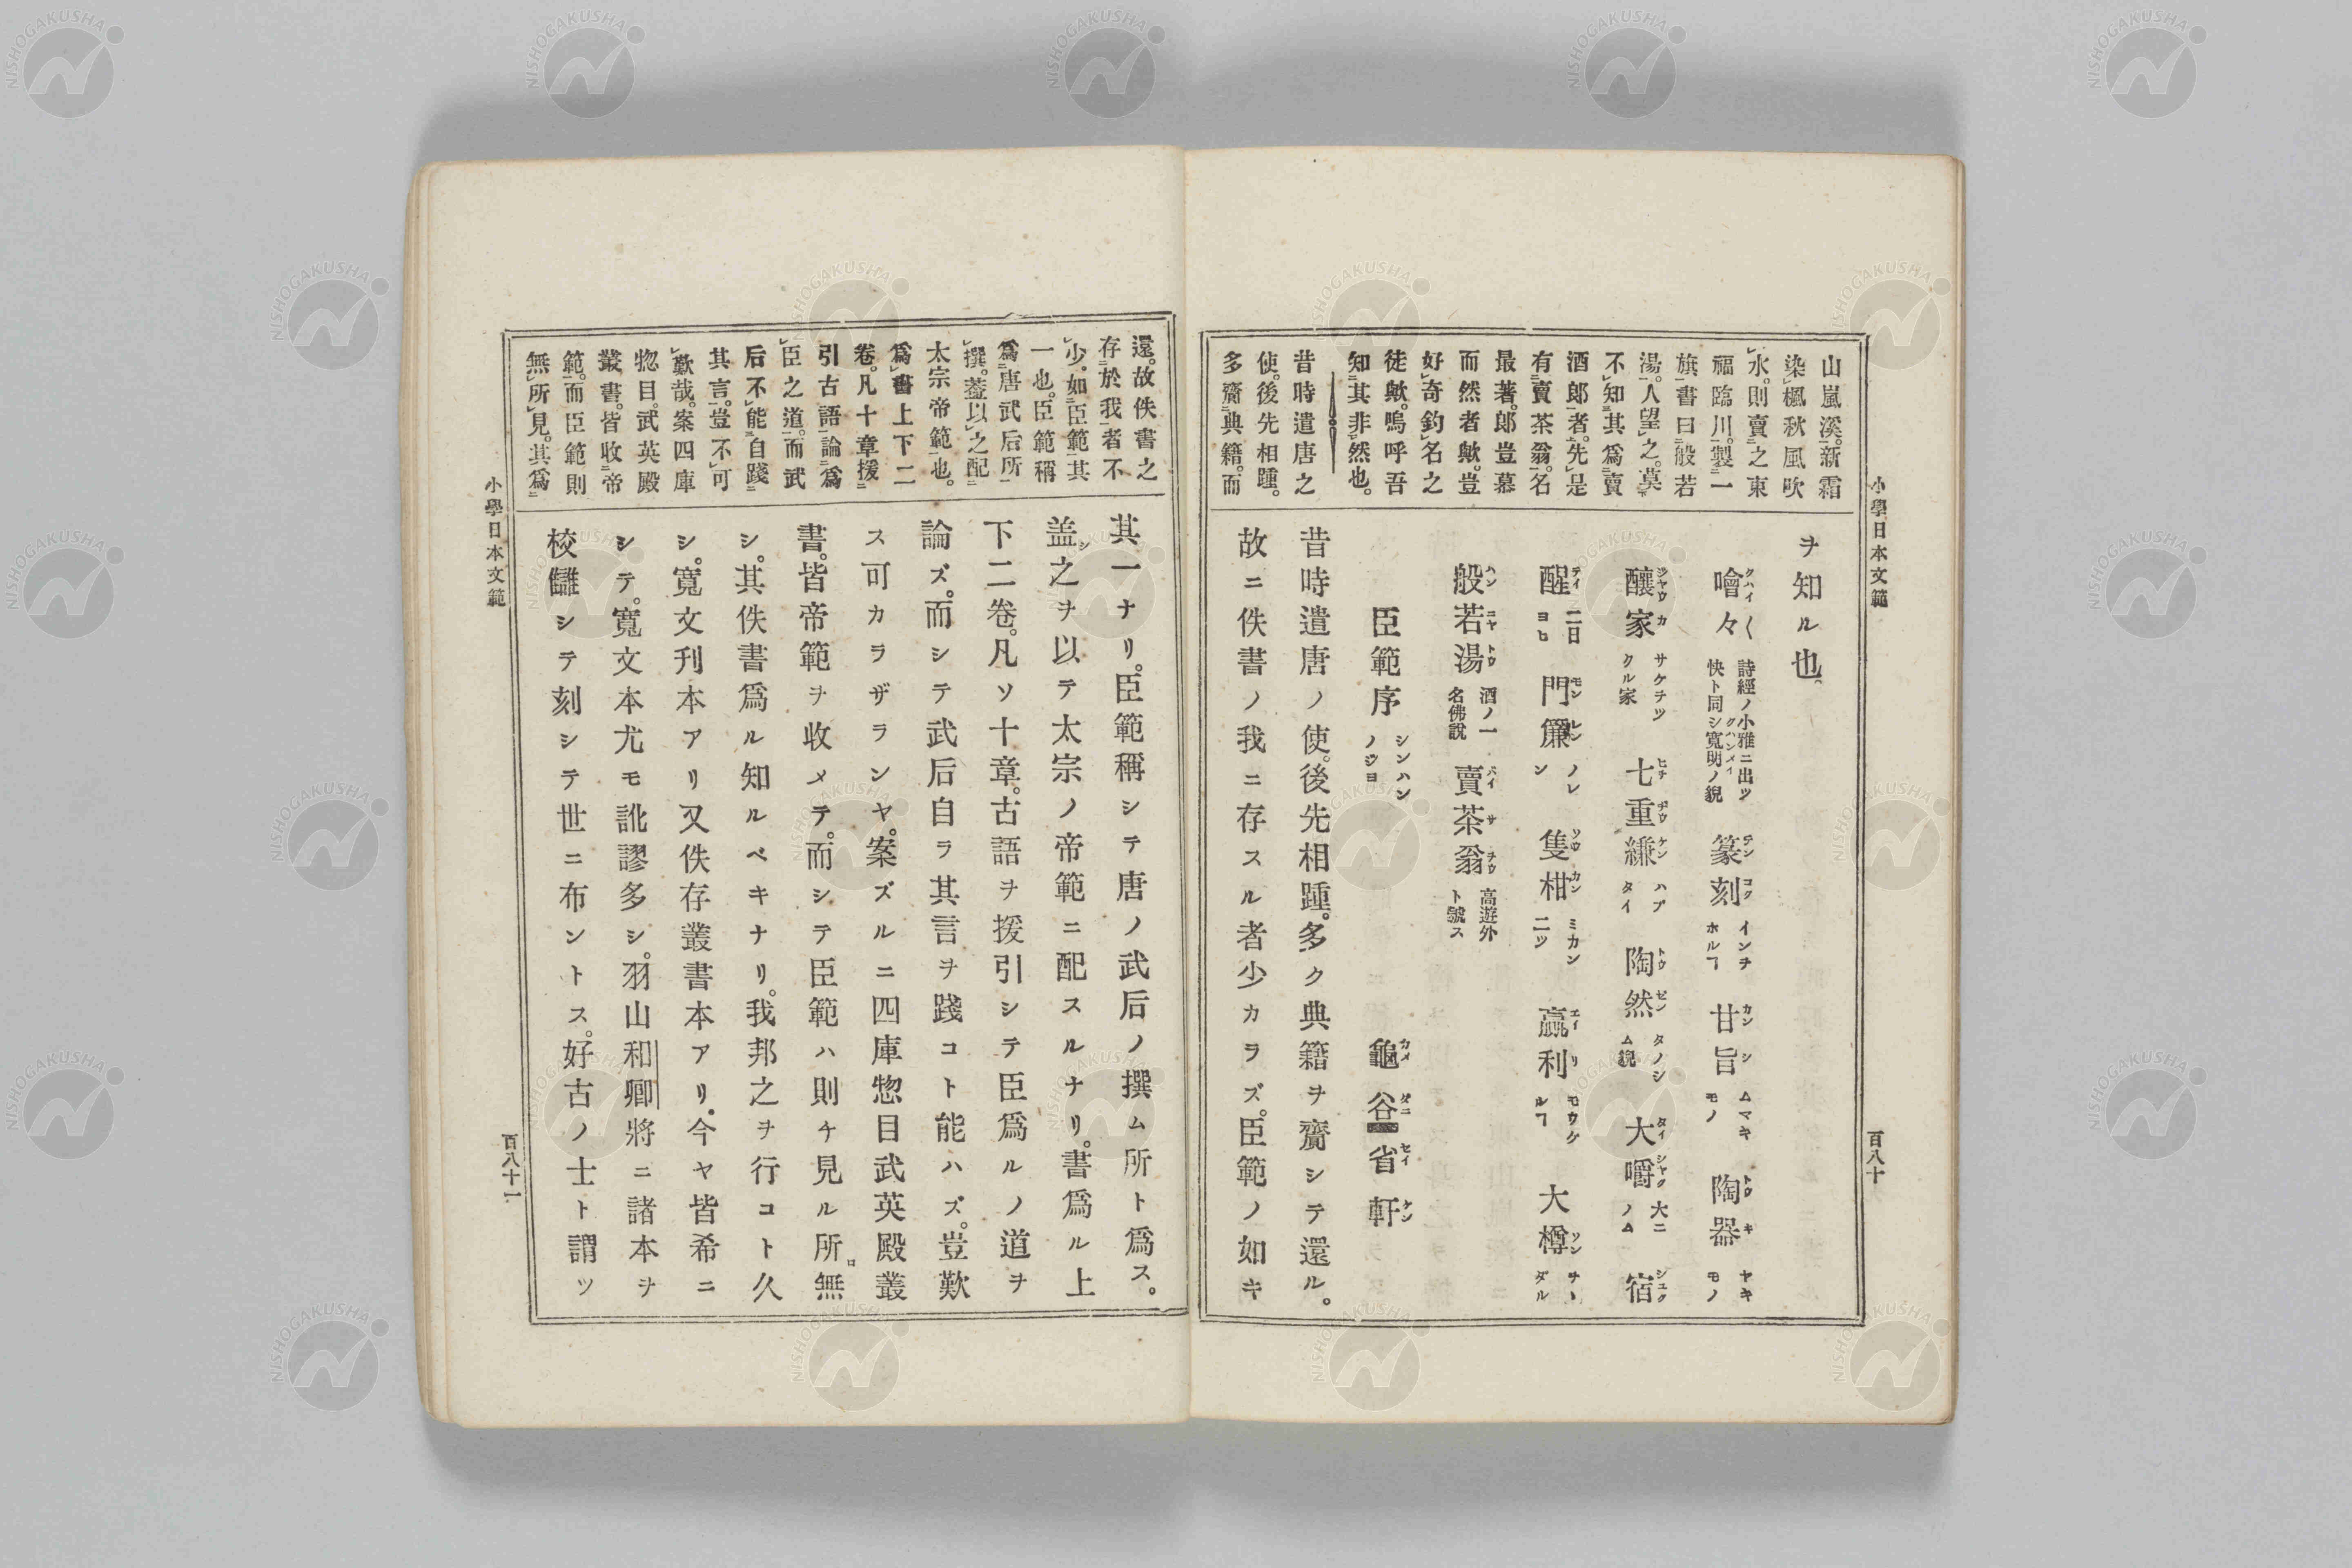 小學日本文範
百八十
山嵐溪。新霜
染楓秋風吹
水。則賣之東
福臨川。製一
旗書曰般若
湯。人望之。莫
不知其爲賣
酒郎者。先是
有賣茶翁。名
最著。郎豈慕
而然者歟。豈
好奇釣名之
徒歟。嗚呼吾
知其非然也。
昔時遣唐之
使。後先相踵。
多齎典籍。而
ヲ知ル也
噲々 クハイ〱 詩經ノ小雅ニ出ツ快ト同シ寬明ノ貌 クハンメイ 篆刻 テンコク インヲホルヿ 甘旨 カンシ ムマキモノ 陶器 トウキ ヤキモノ
釀家 ジヤウカ サケヲツクル家 七重縑 ヒチヂウケン ハブタイ 陶然 トウゼン タノシム貌 大嚼 タイシヤク 大ニノム 宿 シユク
醒 テイ 二日ヨヒ 門簾 モンレン ノレン 隻柑 ソウカン ミカン二ツ 贏利 エイリ モウケルヿ 大樽 ソン ヲヽダル
般若湯 ハンニヤトウ 酒ノ一名佛說 賣茶翁 バイサヲウ 高遊外ト號ス
臣範序 シンハンノジヨ 龜谷省軒 カメダニセイケン
昔時遣唐ノ使。後先相踵。多ク典籍ヲ齎シテ還ル。
故ニ佚書ノ我ニ存スル者少カラズ。臣範ノ如キ
還。故佚書之
存於我者不
少。如臣範其
一也。臣範稱
爲唐武后所
撰。葢以之配
太宗帝範也。
爲書上下二
卷。凡十章援
引古語論爲
臣之道。而武
后不能自踐
其言。豈不可
歎哉。案四庫
惣目。武英殿
叢書。皆收帝
範。而臣範則
無所見。其爲
其一ナリ。臣範稱シテ唐ノ武后ノ撰ム所ト爲ス。
盖シ之ヲ以テ太宗ノ帝範ニ配スルナリ。書爲ル上
下二卷。凡ソ十章。古語ヲ援引シテ臣爲ルノ道ヲ
論ズ。而シテ武后自ラ其言ヲ踐コト能ハズ。豈歎
ス可カラザランヤ。案ズルニ四庫惣目武英殿叢
書。皆帝範ヲ收メテ。而シテ臣範ハ則チ見ル所無
シ。其佚書爲ル知ルベキナリ。我邦之ヲ行コト久
シ。寬文刋本アリ又佚存叢書本アリ。今ヤ皆希ニ
シテ。寬文本尤モ訛謬多シ。羽山和卿將ニ諸本ヲ
校讎シテ刻シテ世ニ布ントス。好古ノ士ト謂ツ
小學日本文範
百八十一